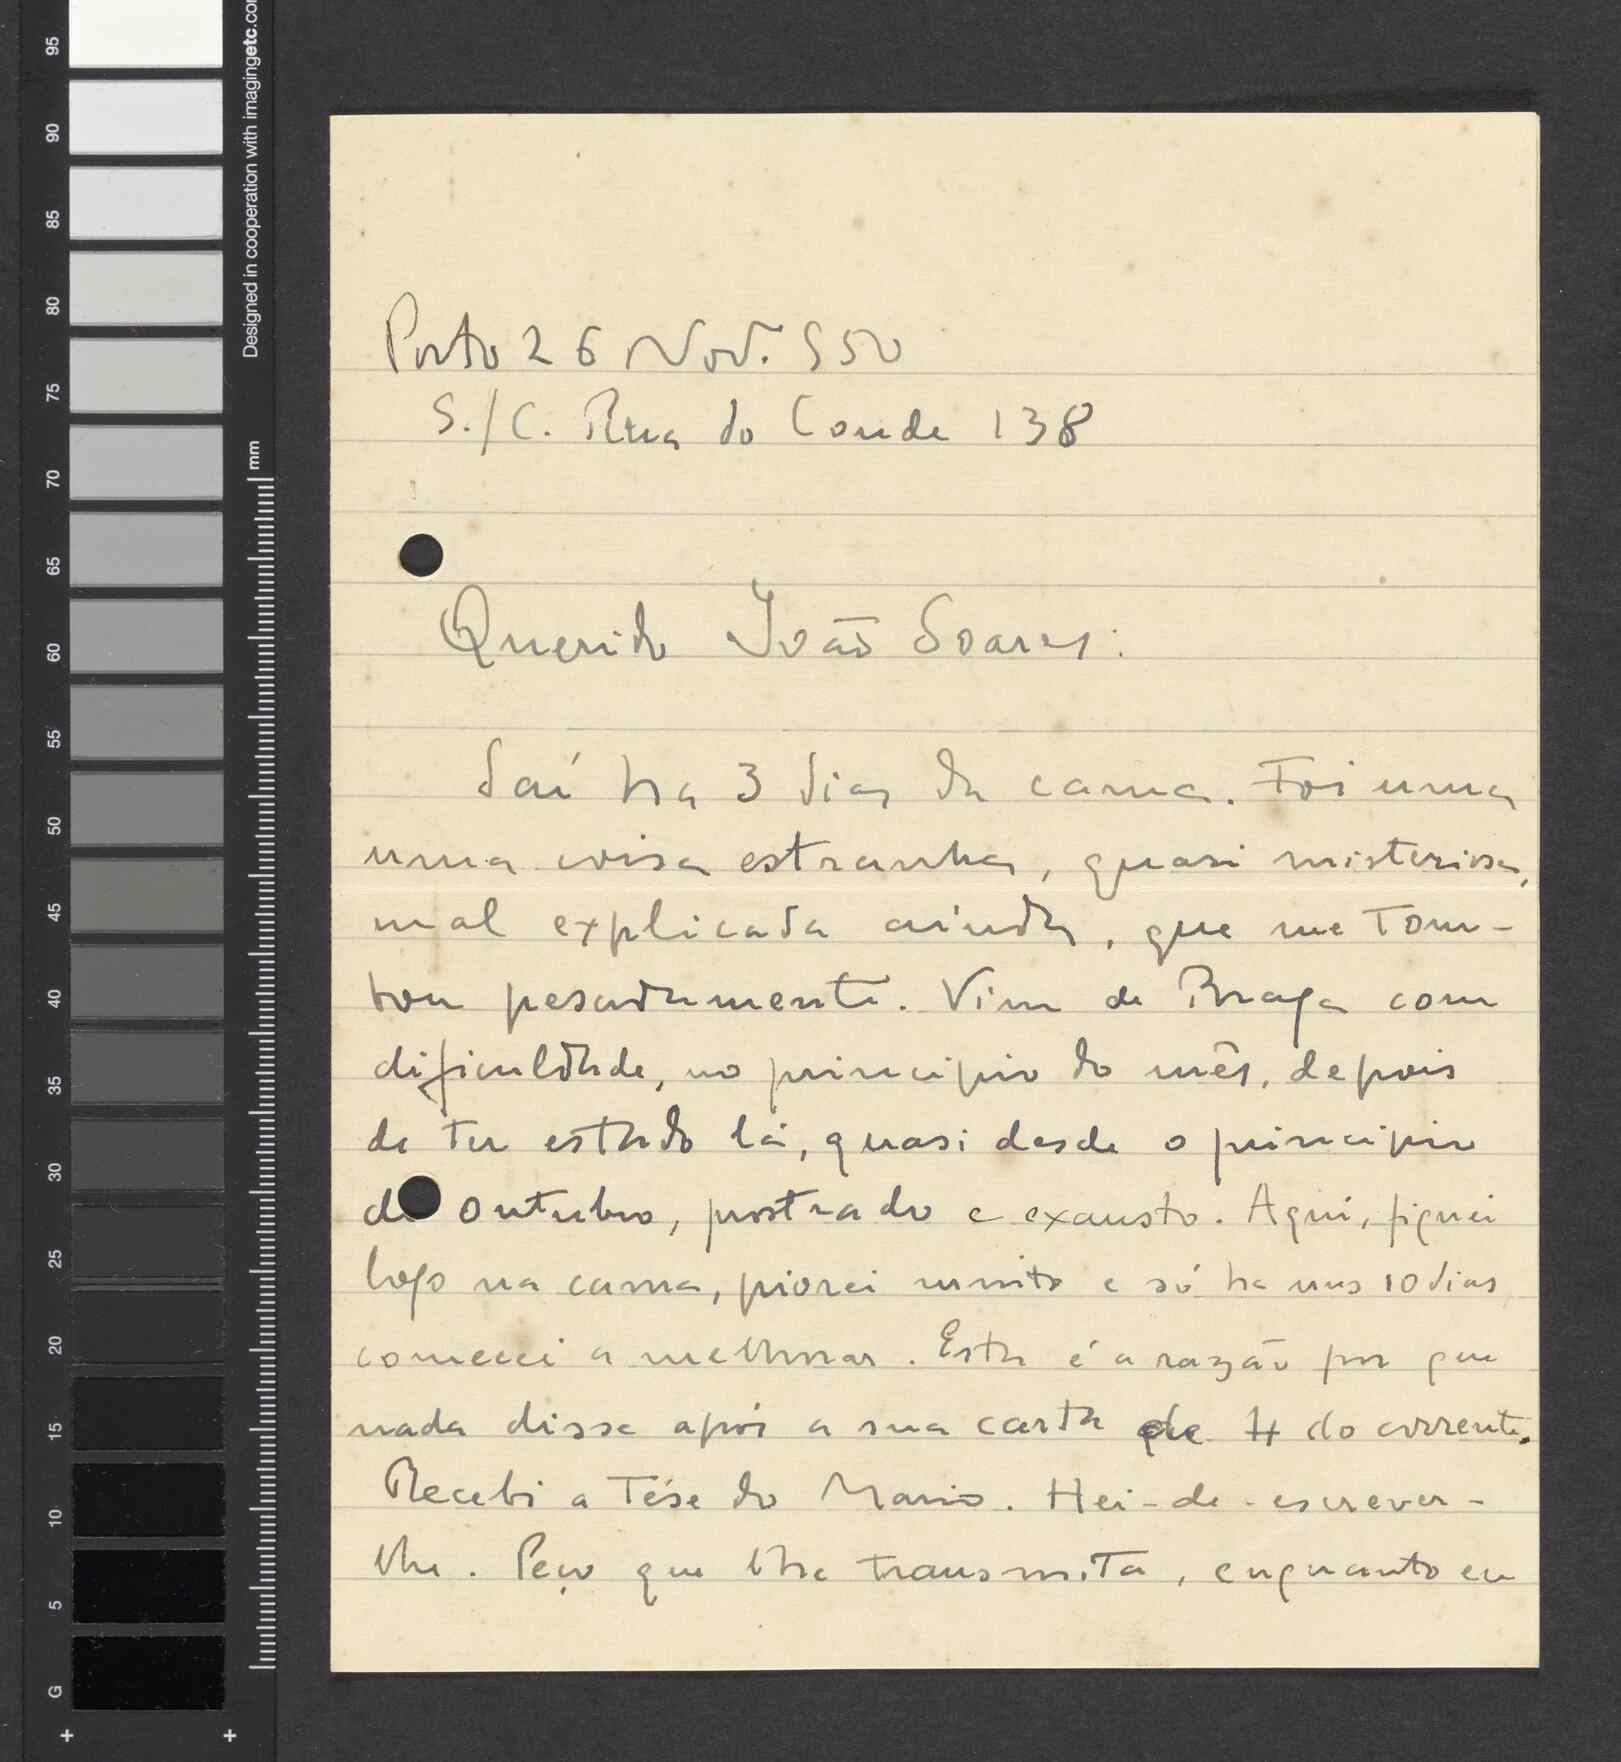 95
90
85
80
75
70
65
60
55
50
45
40
35
30
25
20
15
10
5
G
Designed in cooperation with imagingetc.co
mm
Porto 26 Nov. 950
S./C. Rua do Conde 138
Querido João Soares:
Saí ha 3 dias da cama. Foi uma
uma coisa estranha, quasi misteriosa,
mal explicada ainda, que me tom-
bou pesadamente. Vim de Braga com
dificuldade, no principio do mês, depois
de ter estado lá, quasi desde o principio
de outubro, prostrado e exausto. Aqui, fiquei
logo na cama, piorei muito e só ha uns 10 dias
comecei a melhorar. Esta é a razão por que
nada disse após a sua carta de 4 do corrente.
Recebi a Tése do Mario. Hei-de-escrever-
lhe. Peço que lhe transmita, enquanto eu